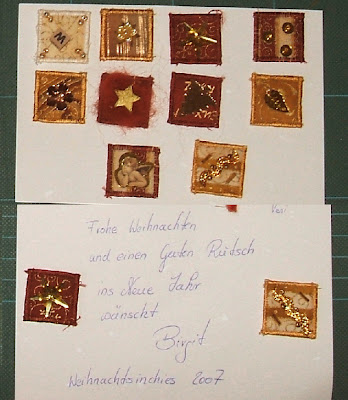 W
Frohe Weihnachten
und einen Guten Rutsch
ins Neue Jahr
wünscht
Birgit
Weihnachtsinchies 2007